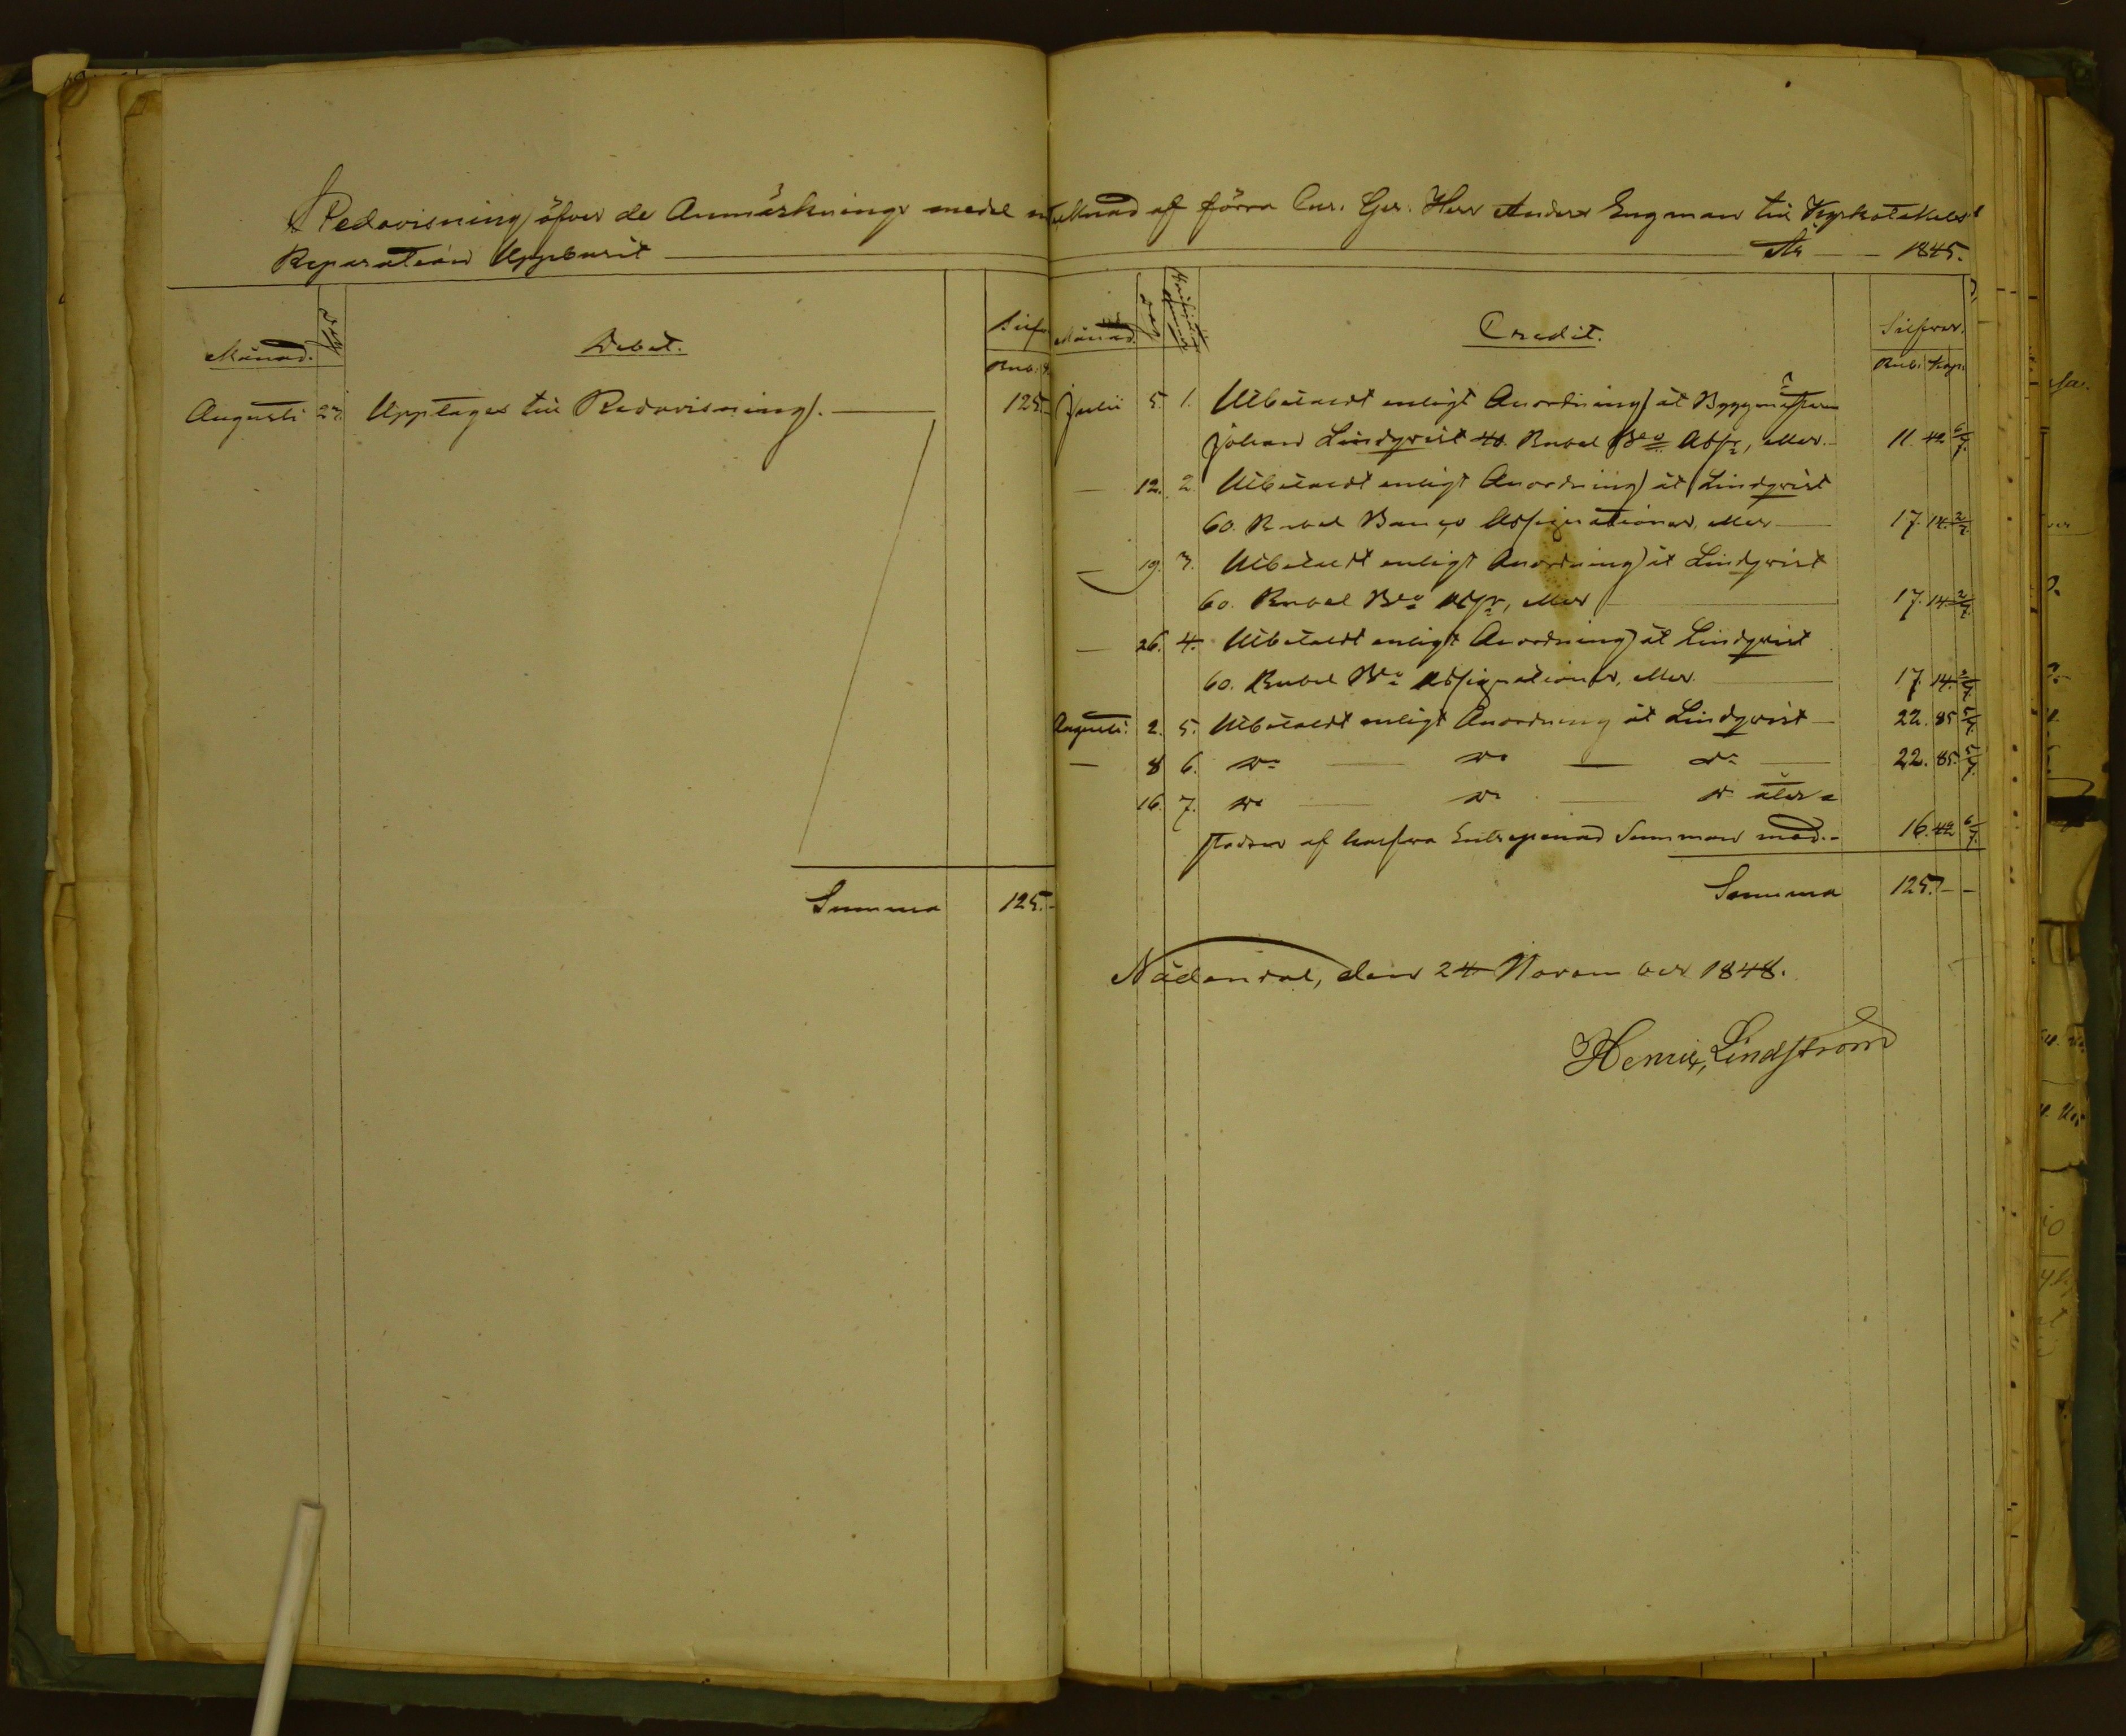 Redovisning öfver de Anmärknings medel af förra Cur. Ger. Herr Anders Engman till Kyrkotakets
Reparation Uppburit År 1845.
Månad. Dag Debet. Silfv
Rub.
Augusti 27. Upptages till Redovisning. 125.-
Summa 125.-
Månad. Dag Credit. Silfver.
Rub. Kop.
Julii 5. 1. Utbetaldt enligt Anordning åt Byggmästaren
Johan Lindqvist 40. Rubel Bco Assr, eller 11. 42 6/7.
— 12. 2. Utbetaldt enligt Anordning åt Lindqvist
60. Rubel Banco Assignationer, eller 17. 14. 2/7.
— 19. 3. Utbetaldt enligt Anordning åt Lindqvist
60. Rubel Bco Assr, eller 17. 14. 2/7.
— 26. 4. Utbetaldt enligt Anordning åt Lindqvist
60. Rubel Bco Assignationer, eller 17. 14. 2/7.
Augusti. 2. 5. Utbetaldt enligt Anordning åt Lindqvist 22. 85 5/7.
— 8 6. Do Do Do 22. 85. 5/7.
16. 7. Do Do Do åter-
stoden af halfva Entreprenad Summan med.- 16. 42 6/7.
Summa 125.- -
Nådendal, den 24 November 1848.
Henric Lindström